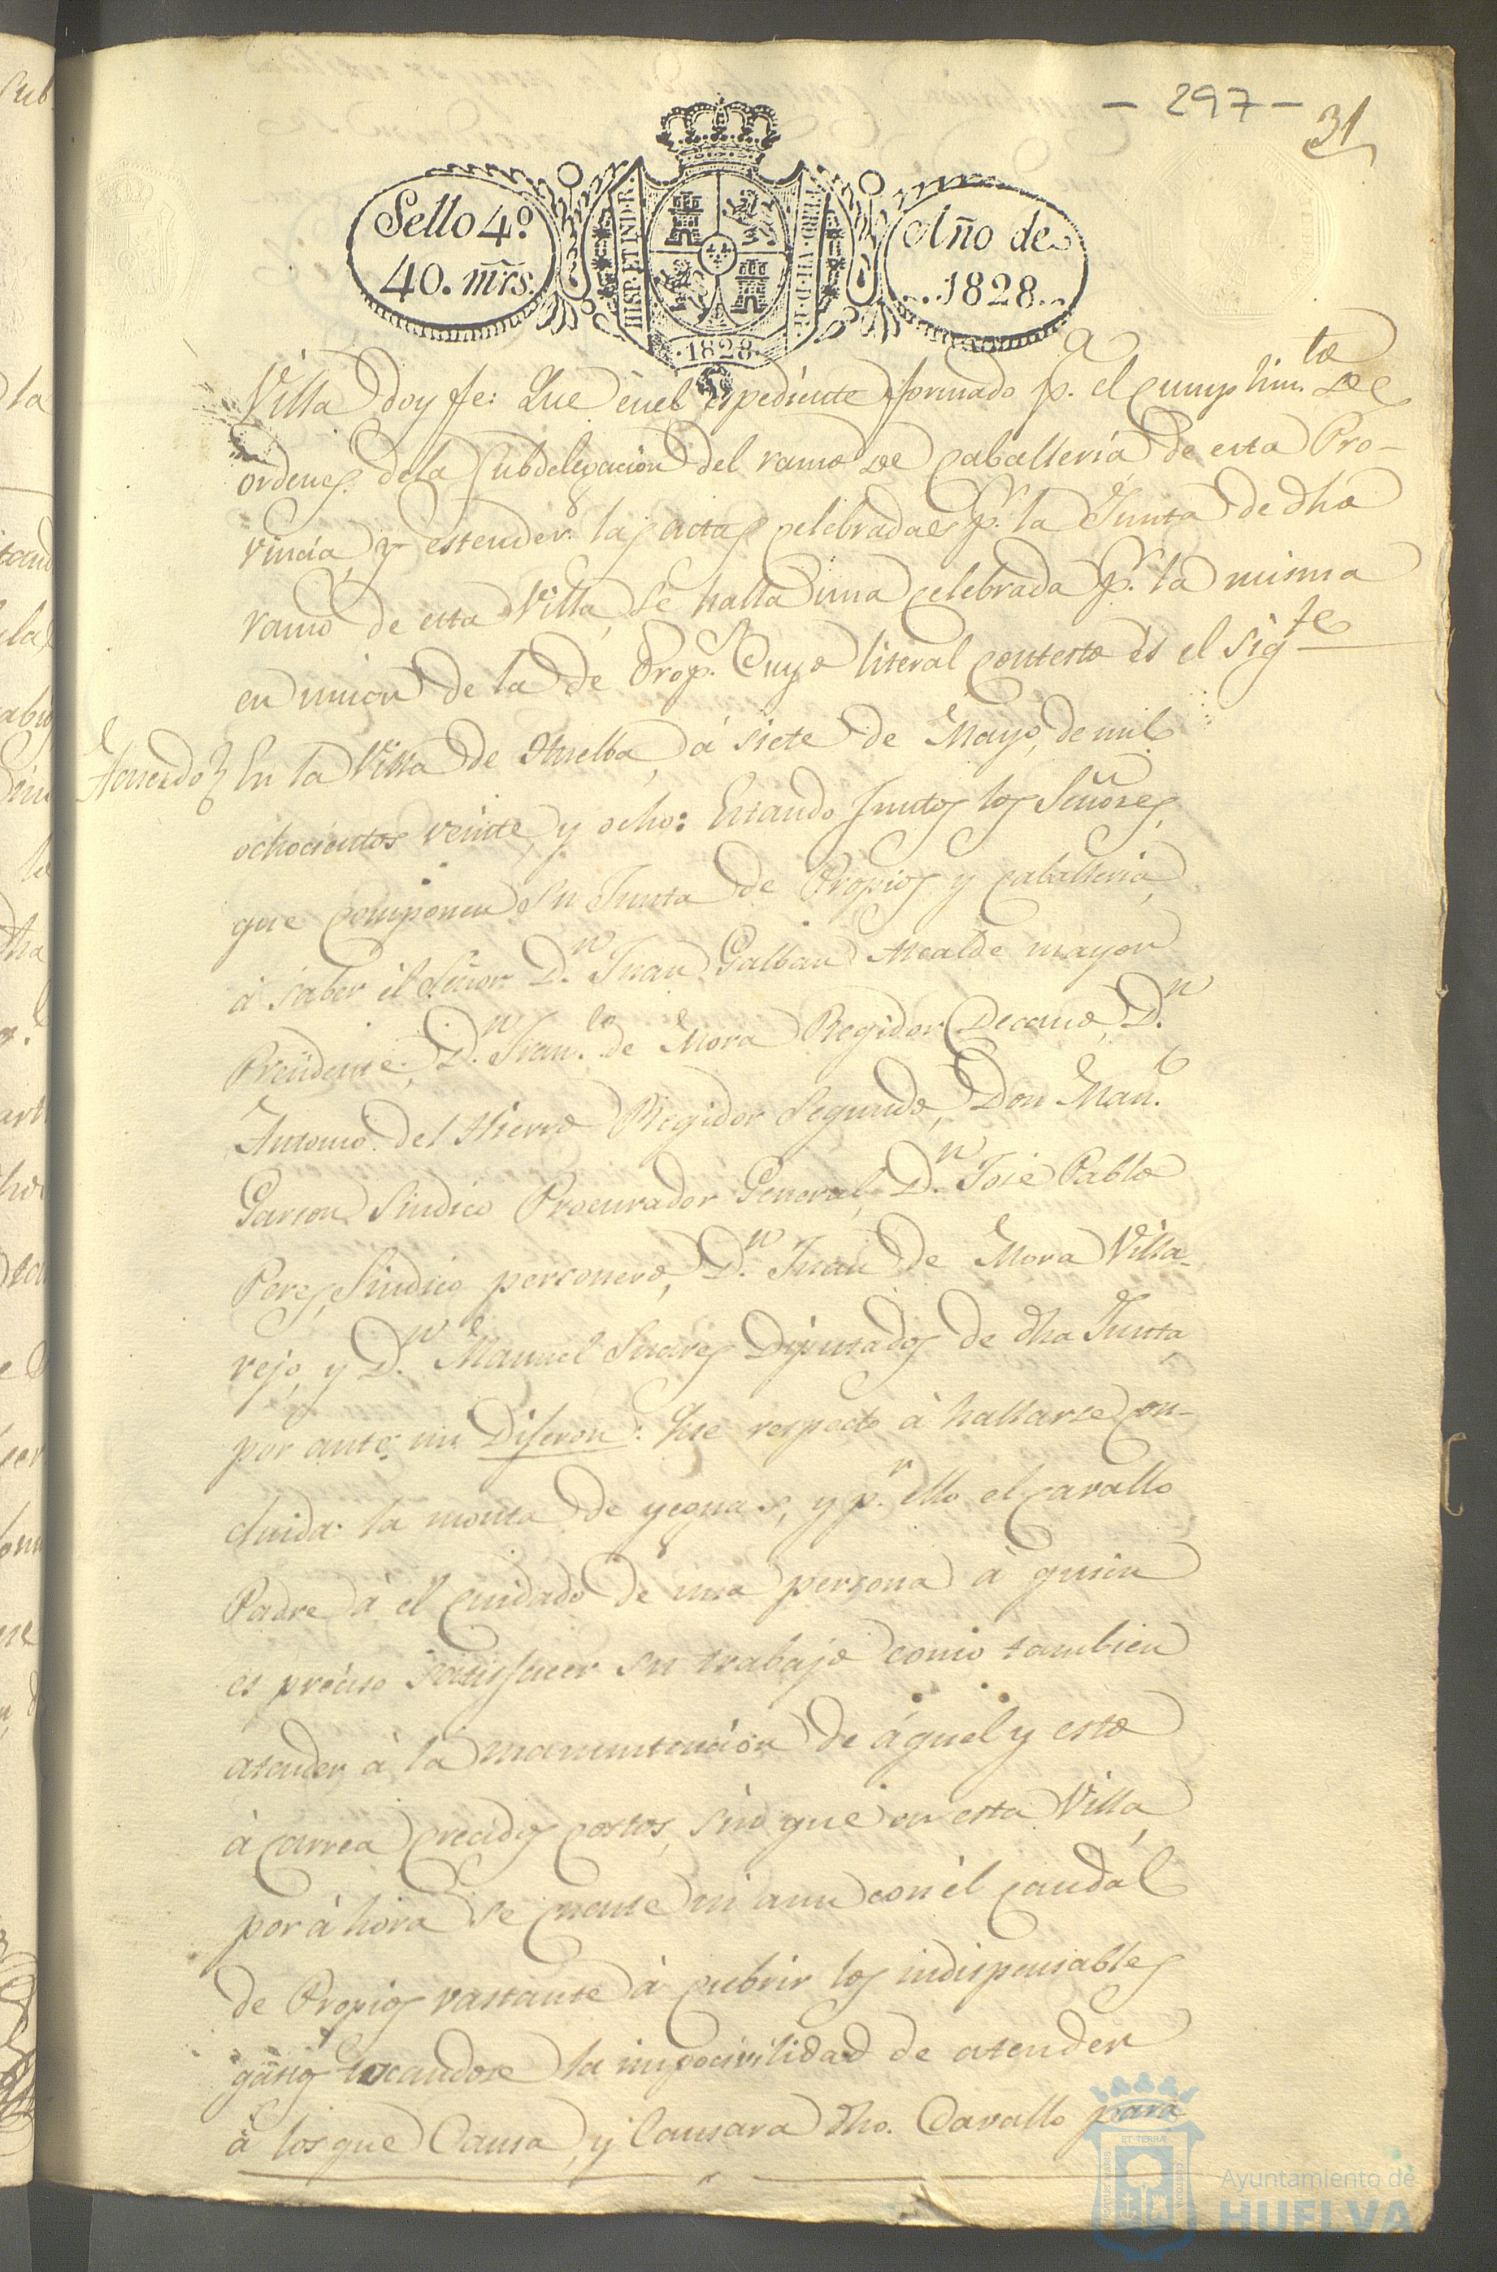 - 297 -
31
Sello 4º
40. mrs.
HISP. ET IND. R.
FERD. VII. D. G.
Año de
1828
.1828.
Villa doy fe: Que en el espediente formado pª. el cumplimto. de
ordenes. de la Subdelegacion del ramo de caballeria de esta Pro-
vincia, y estender. las actas celebradas pr. la Junta de dha
ramo de esta Villa, se halla una celebrada pr. la misma
en union de la de Prop.s Cuyo literal contesto es el sigte
Acuerdo } En la Villa de Huelba, á siete de Mayo, de mil
ochocientos veinte, y ocho: Estando Juntos los Señores,
que componen su Junta de Propios y caballeria,
á saber el Señor Dn. Juan Galban Alcalde mayor
Precidente, Dn. Franco. de Mora Regidor Decano, Dn.
Antonio del Hierro Regidor Segundo, Don Manl.
Garzon Sindico Procurador General, Dn. Jose Pablo
Peres, Sindico personero, Dn. Juan de Mora Villa-
rejo, y Dn. Manuel Suares Diputados de dha Junta,
por ante mi Diferon: Que respecto á hallarse con-
cluida la monta de yeguas, y pr. ello el cavallo
Padre á el cuidado de una persona á quien
es preciso satisfacer su trabajo como tambien
atender á la manutencion de áquel y esto
á carrea crecidos costos, sin que en esta Villa,
por áhora se cuente ni aun con él caudál
de Propios vastante á cubrir los indispensables
gastos tocandose la imposivilidad de atender
á los que Causa, y Causara dho. Cavallo para
ET TERRÆ
Ayuntamiento de
HUELVA